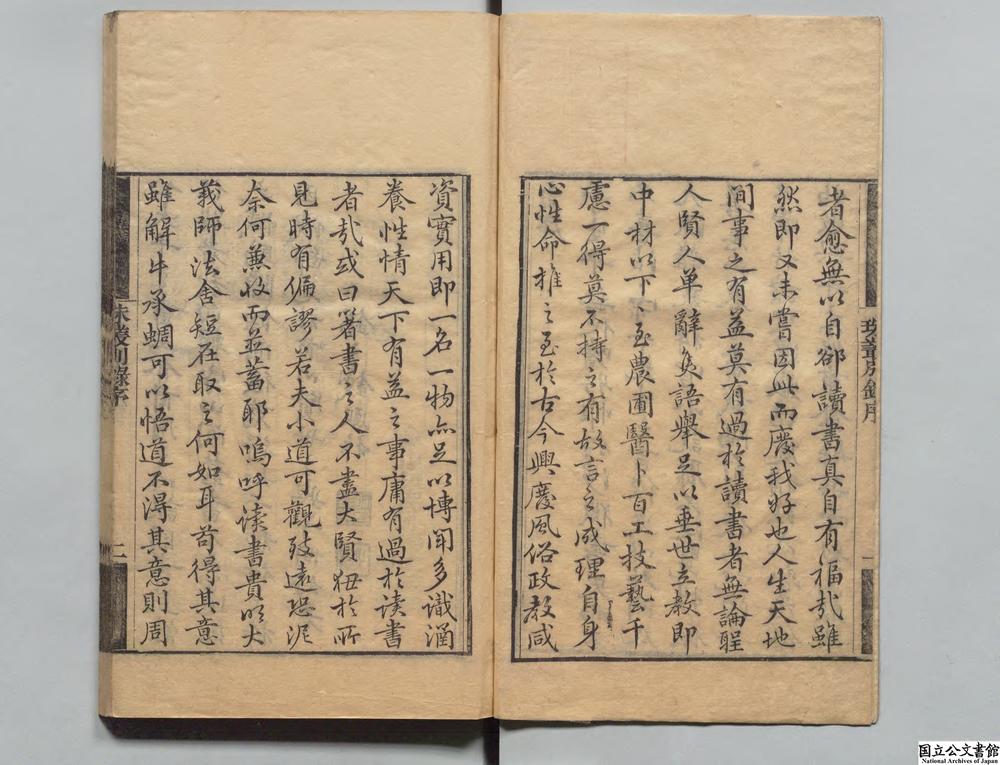 者愈無以自卻讀書真自有福哉雖
然即又未嘗因此而廢我好也人生天地
間事之有益莫有過於讀書者無論聖
人賢人单辭隻語舉足以垂世立教即
中材以下下至農圃醫卜百工技藝千
慮一得莫不持之有故言之成理自身
心性命推之至於古今興廢風俗政教咸
資實用即一名一物亦足以博聞多識涵
養性情天下有益之事庸有過於读書
者哉或曰著書之人不盡大賢狃於所
見時有偏謬若夫小道可觀致遠恐泥
奈何兼收而並蓄耶嗚呼读書貴明大
義師法舍短在取之何如耳苟得其意
雖解牛承蜩可以悟道不得其意則周
珠叢別錄序
二
国立公文書館
National Archives of Japan